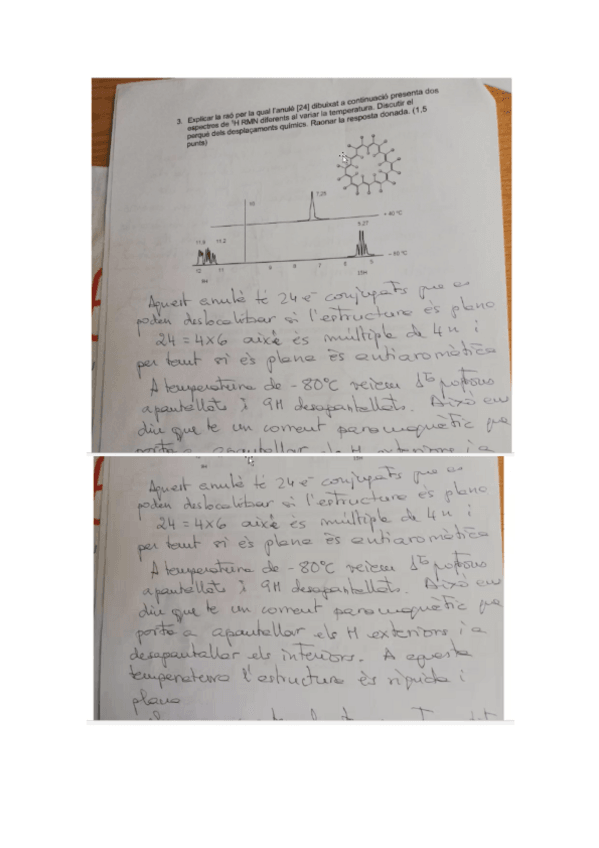 3. Explicar la raó per la qual l'anulè [24] dibuixat a continuació presenta dos
espectres de ¹H RMN diferents al variar la temperatura. Discutir el
perquè dels desplaçaments químics. Raonar la resposta donada. (1,5
punts)
7.25
+ 40 °C
11.2
- 80 °C
12 11 9 8 7 6 5
9H 15H
Aquest anulè té 24 e⁻ conjugats que es
poden deslocalitzar si l'estructura és plana
24 = 4x6 això és múltiple de 4n i
per tant si és plana és antiaromàtica
A temperatura de -80°C veiem 15 protons
apantallats i 9H desapantallats. Això ens
diu que te un corrent paramagnètic que
porta a apantallar els H exteriors i a
Aquest anulè té 24 e⁻ conjugats que es
poden deslocalitzar si l'estructura és plana
24 = 4x6 això és múltiple de 4n i
per tant si és plana és antiaromàtica
A temperatura de -80°C veiem 15 protons
apantallats i 9H desapantallats. Això ens
diu que te un corrent paramagnètic que
porta a apantallar els H exteriors i a
desapantallar els interiors. A aquesta
temperatura l'estructura és rígida i
plana